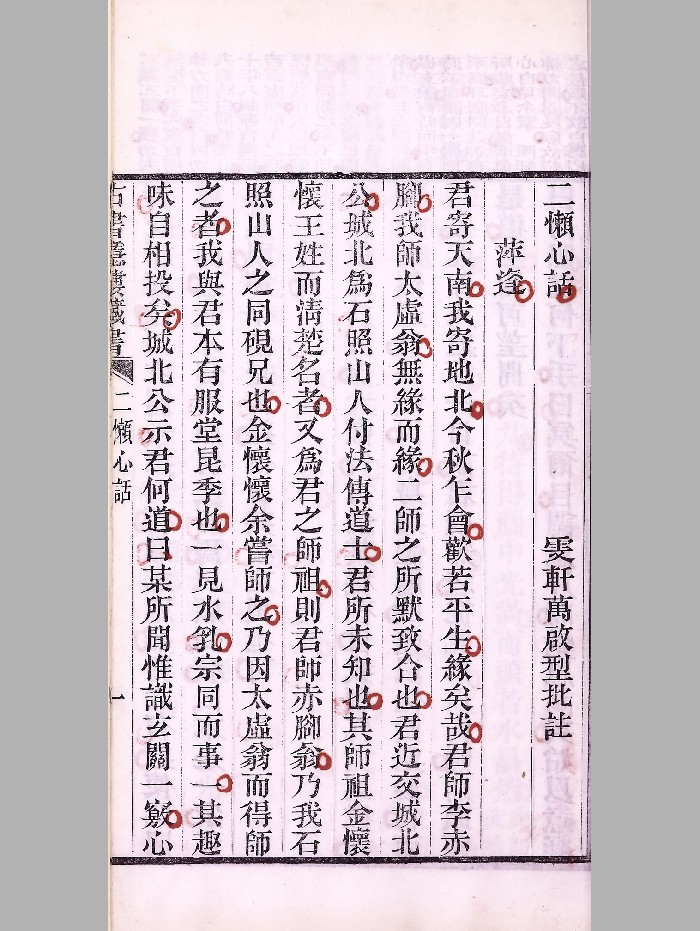 二懶心話
雯軒萬啟型批註
萍逢
君寄天南我寄地北今秋乍會歡若平生緣矣哉君師李赤
腳我師太虛翁無緣而緣二師之所默致合也君近交城北
公城北爲石照山人付法傳道士君所未知也其師祖金懷
懷王姓而淸楚名者又爲君之師祖則君師赤腳翁乃我石
照山人之同硯兄也金懷懷余嘗師之乃因太虛翁而得師
之者我與君本有服堂昆季也一見水乳宗同而事一其趣
味自相投矣城北公示君何道曰某所聞惟識玄關一竅心
古書隱樓藏書
二懶心話
一